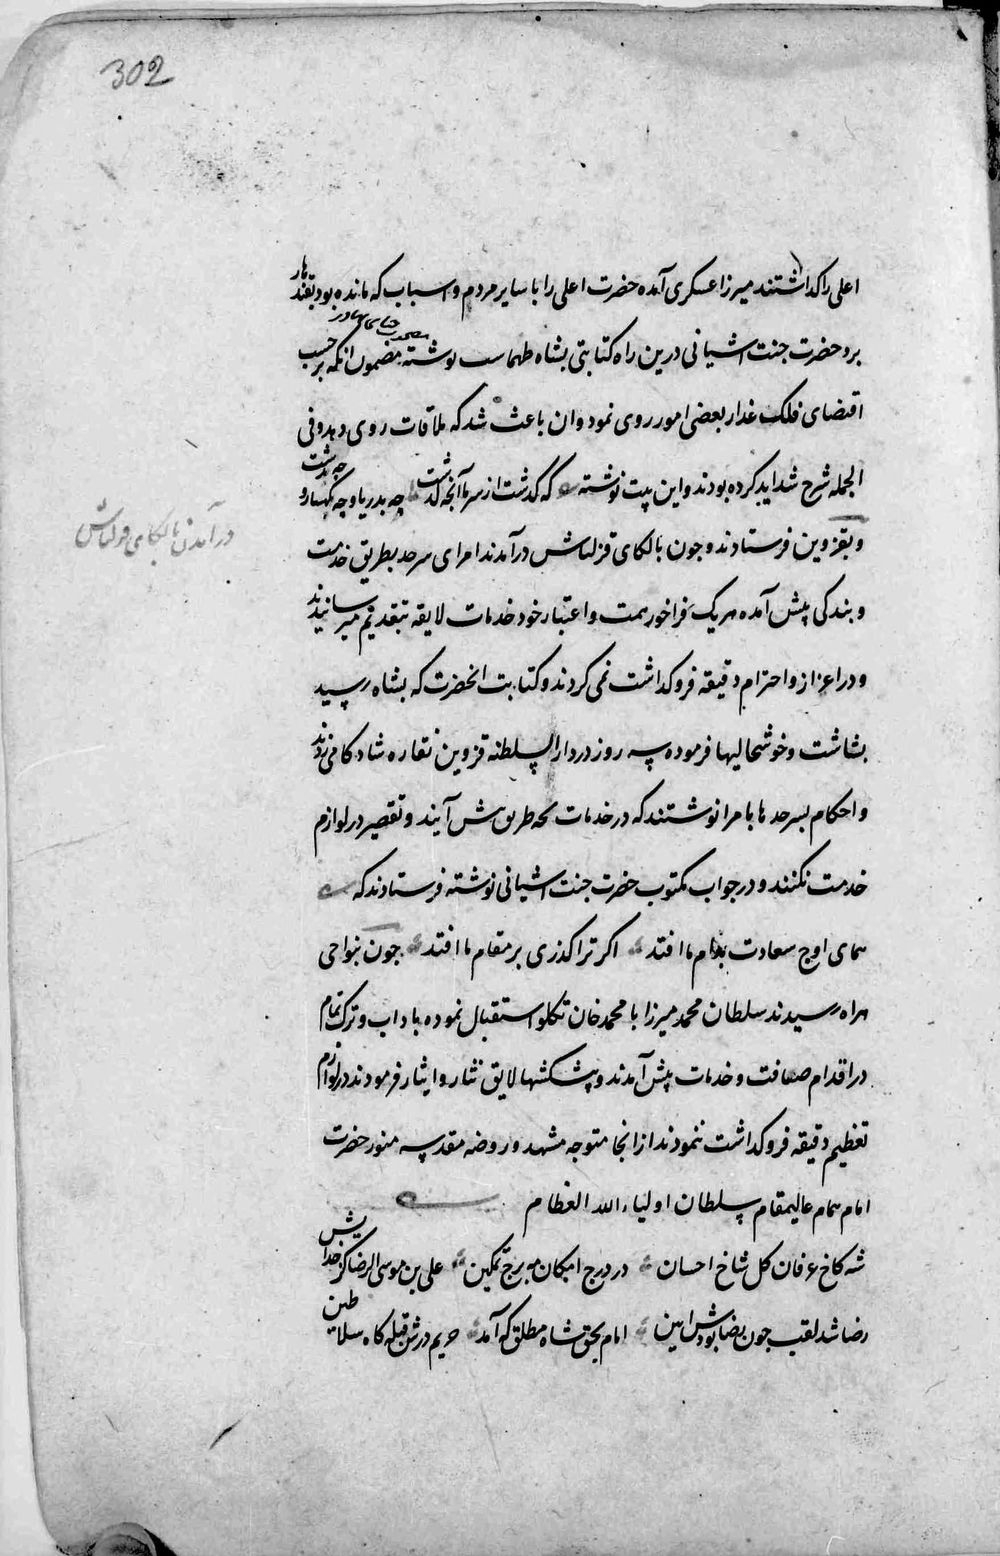 302
اعلی را کداشتند میرزا عسکری آمده حضرت اعلی را با سایر مردم و اسباب که مانده بود بقندهار
برد حضرت جنت اشیانی درین راه کتابتی بشاه طهماسب نوشته مضمون انکه بر حسب
اقتضای فلک غدار بعضی امور روی نمود وان باعث شد که ملاقات روی دهد و فی
الجمله شرح شداید کرده بودند و این بیت نوشته که گذشت از سر ما آنچه گذشت چه بدریا و چه بکهسار و چه دشت
و بقزوین فرستادند و چون بالکای قزلباش درآمدند امرای سرحد بطریق خدمت
در آمدن بالکای قزلباش
و بندکی پیش آمده هریک فراخور همت و اعتبار خود خدمات لایقه بتقدیم میرسانیدند
و در اعزاز و احترام دقیقه فروکداشت نمی کردند و کتابت انحضرت که بشاه رسید
بشاشت و خوشحالیها فرموده سه روز در دار السلطنه قزوین نقاره شادکامی زدند
و احکام بسرحدها بامرا نوشتند که در خدمات بچه طریق پیش آیند و تقصیر در لوازم
خدمت نکنند و در جواب مکتوب حضرت جنت اشیانی نوشته فرستادند که
همای اوج سعادت بدام ما افتد اکر ترا کذری بر مقام ما افتد جون بنواحی
هراه رسیدند سلطان محمد میرزا با محمد خان تکلو استقبال نموده باداب و ترک تمام
در اقدام ضیافت و خدمات پیش آمدند و پیشکشها لایق نثار و ایثار فرمودند در لوازم
تعظیم دقیقه فروکداشت ننمودند از انجا متوجه مشهد و روضه مقدسه منور حضرت
امام همام عالیمقام سلطان اولیاء الله العظام
شه کاخ عرفان کل شاخ احسان در درج امکان مه برج تمکین علی بن موسی الرضا کز خدایش
رضا شد لقب جون رضا بودش ایین امام بحق شاه مطلق که آمد حریم درش قبله کاه سلاطین